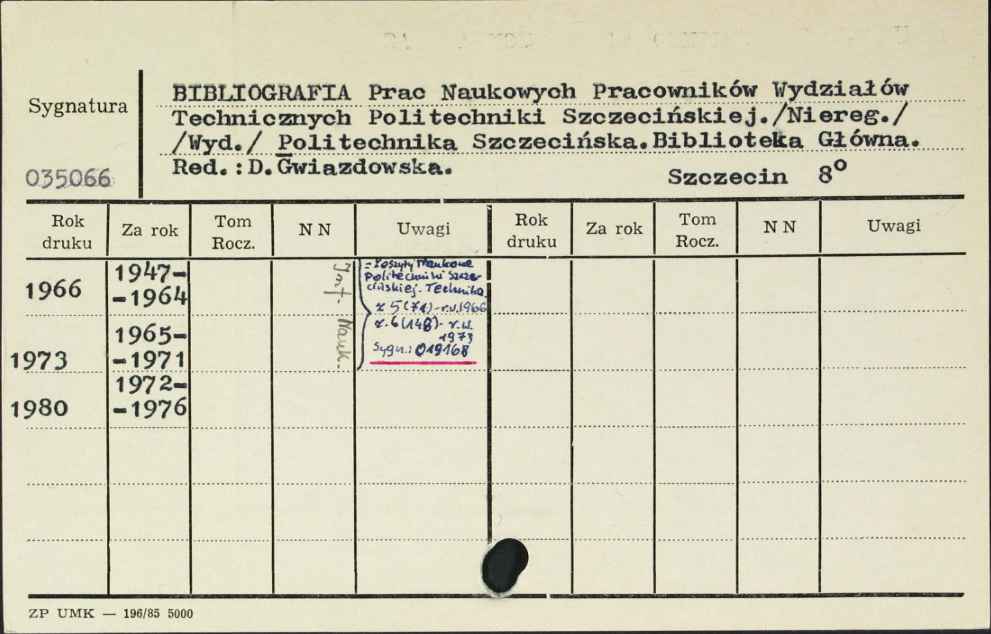 Sygnatura
035066
BIBLIOGRAFIA Prac Naukowych Pracowników Wydziałów
Technicznych Politechniki Szczecińskiej./Niereg./
/Wyd./ Politechnika Szczecińska.Biblioteka Główna.
Red.:D.Gwiazdowska.
Szczecin 8°
Rok druku
Za rok
Tom Rocz.
N N
Uwagi
Rok druku
Za rok
Tom Rocz.
N N
Uwagi
1966
1947-
-1964
1973
1965-
-1971
1980
1972-
-1976
= Zeszyty Naukowe
Politechniki Szcze-
cińskiej. Technika,
z. 5(71)- r.w. 1966
z. 6(148)- r.w.
1973
Sygn.: 019168
ZP UMK — 196/85 5000